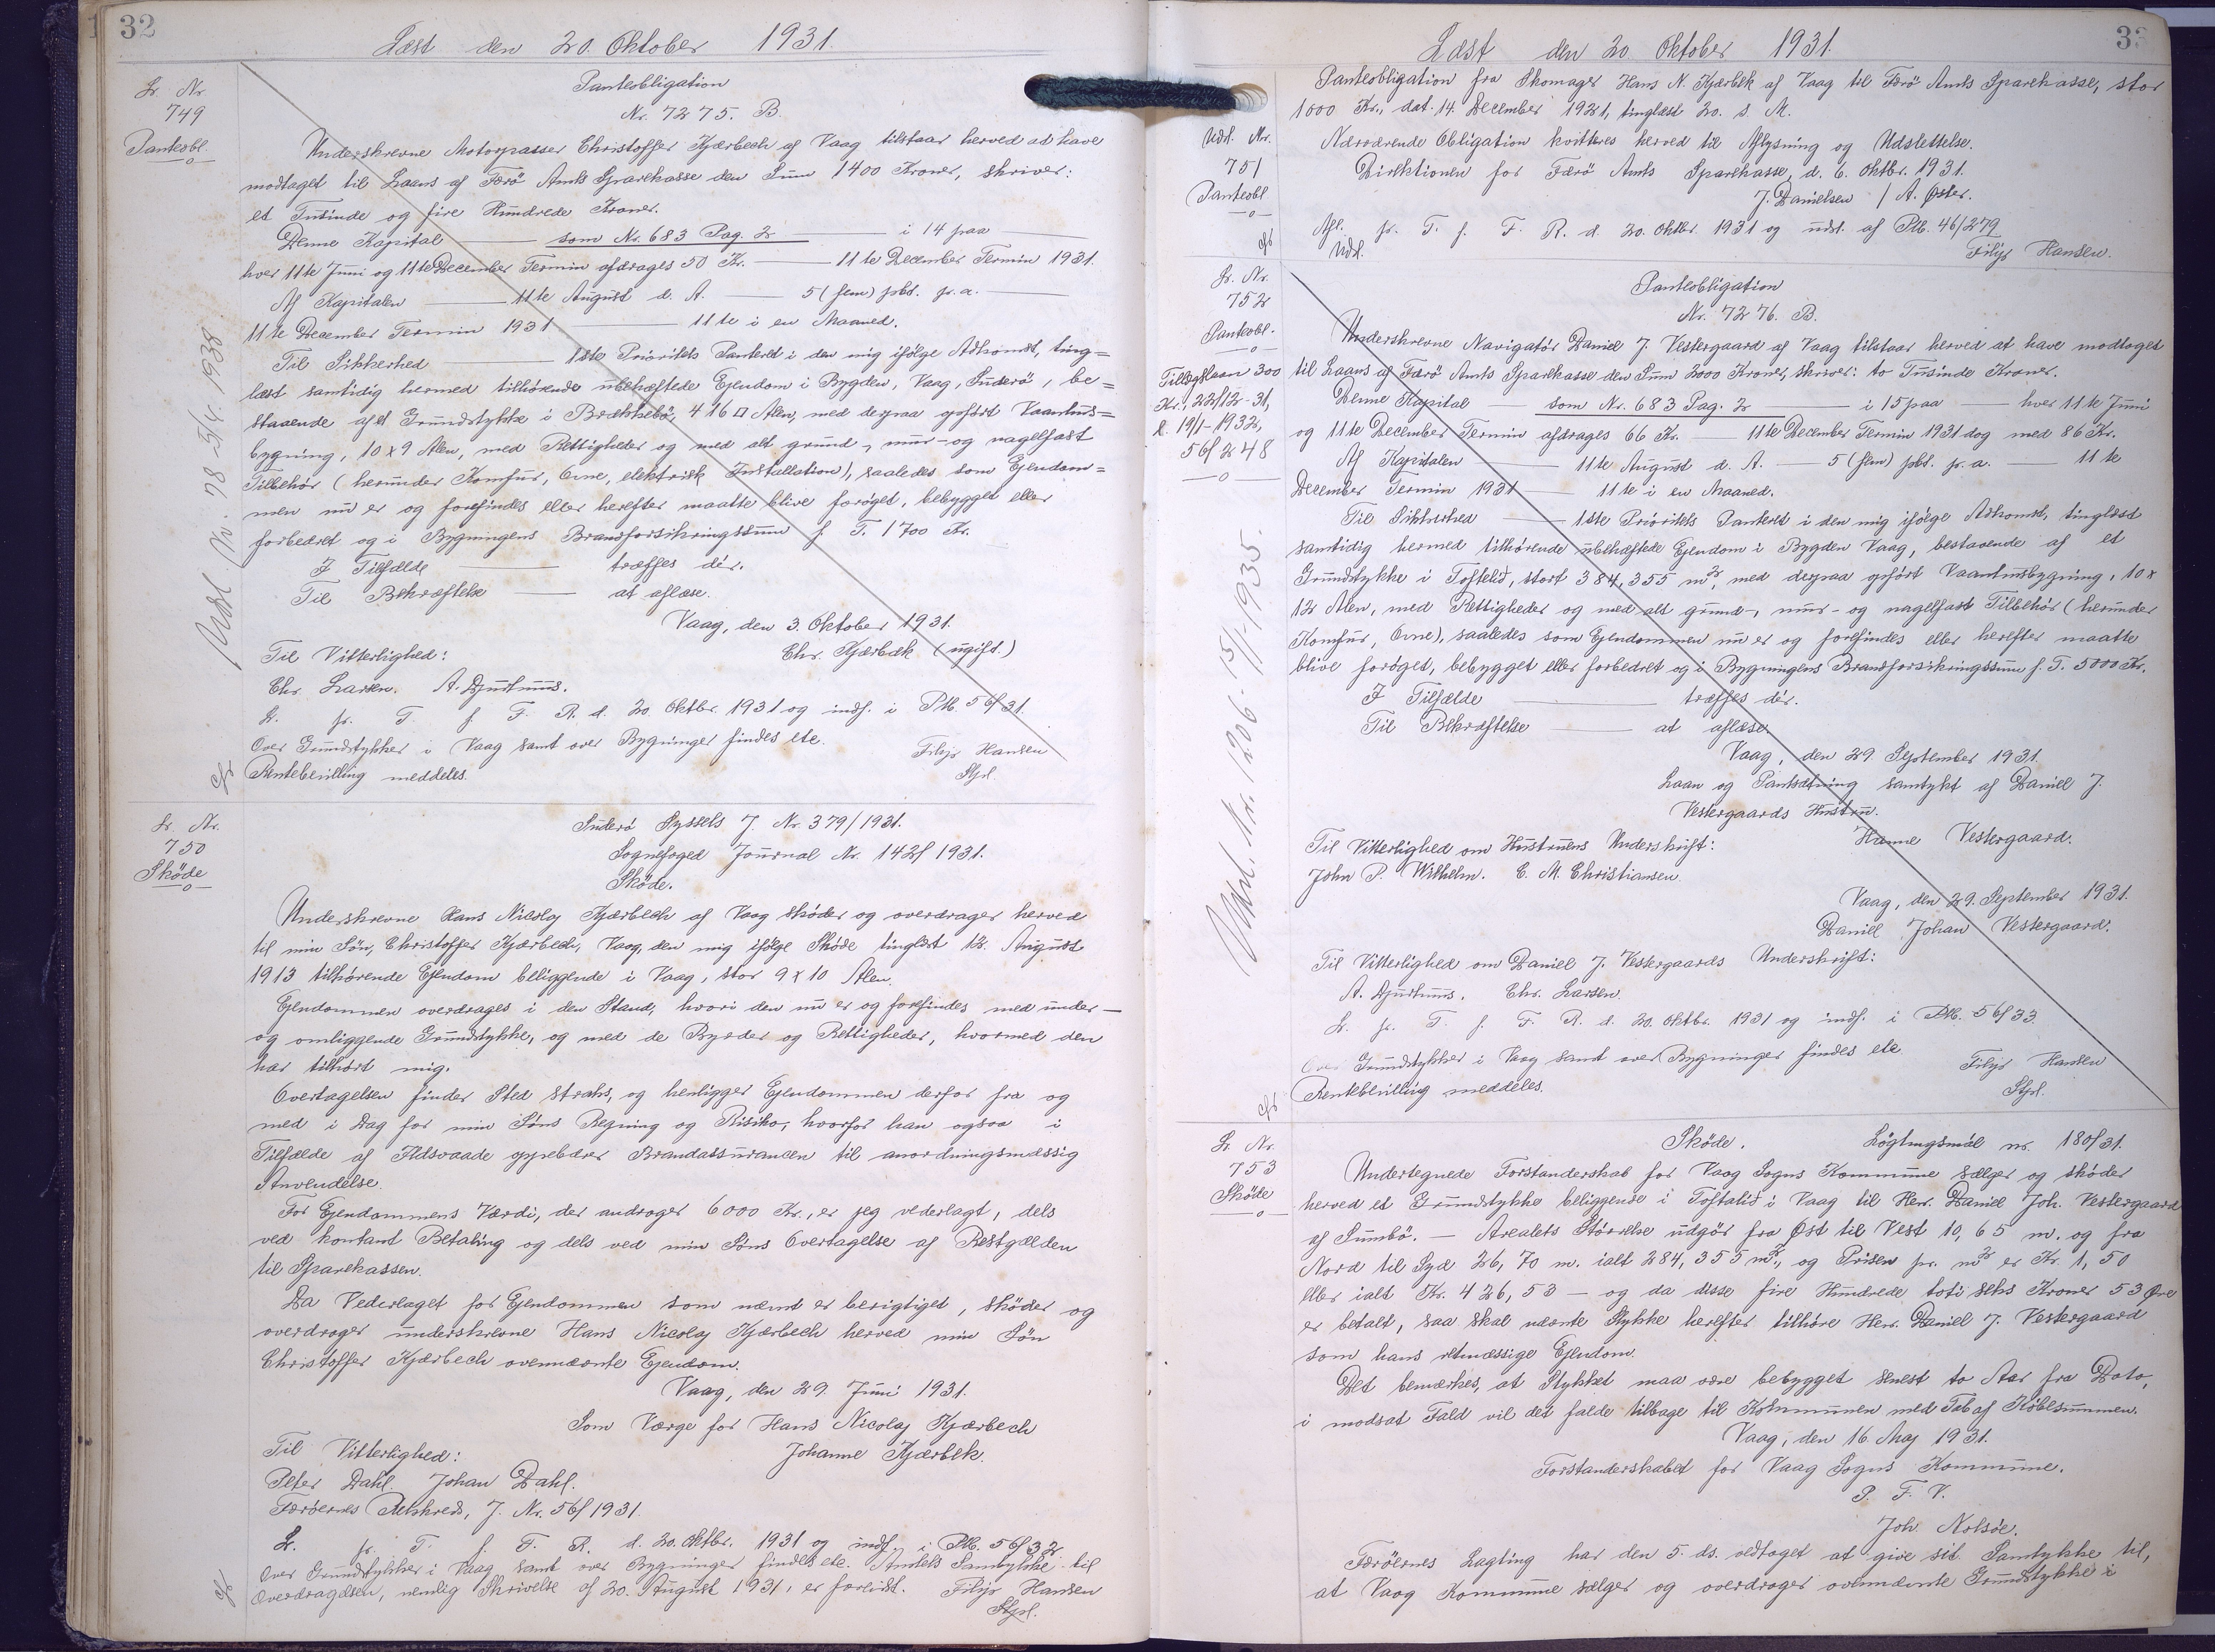 32
Læst den 20. Oktober 1931.
Lr. Nr.
749
Panteobl.
Udsl. Nr. 78 - 5/4 1938.
Panteobligation
Nr. 7275. B.
Underskrevne Motorpasser Christoffer Kjærbech af Vaag tilstaar herved at have
modtaget til Laans af Færø Amts Sparekasse den Sum 1400 Kroner, skriver:
et Tusinde og fire Hundrede Kroner.
Denne Kapital — som Nr. 683 Pag. 2 — i 14 paa —
hver 11te Juni og 11te December Termin afdrages 50 Kr. — 11te December Termin 1931.
Af Kapitalen — 11te August d. A. — 5 (fem) pct. p.a. —
11te December Termin 1931 — 11te i en Maaned.
Til Sikkerhed — 1ste Prioritets Panteret i den mig ifølge Adkomst, ting=
læst samtidig hermed tilhørende ubehæftede Ejendom i Bygden, Vaag, Suderø, be=
staaende af et Grundstykke i Brekkebø, 416 □ Alen, med derpaa opført Vaanhus=
bygning, 10 x 9 Alen, med Rettigheder og med alt grund-, mur- og nagelfast
Tilbehør (herunder Komfur, Ovne, elektrisk Installation), saaledes som Ejendom=
men nu er og forefindes eller herefter maatte blive forøget, bebygget eller
forbedret og i Bygningens Brandforsikringssum f. T. 1700 Kr.
I Tilfælde — træffes dér.
Til Bekræftelse — at aflæse.
Vaag, den 3. Oktober 1931.
Til Vitterlighed: Chr. Kjærbæk (ugift.)
Chr. Larsen. A. Djurhuus.
L. pr. T. f. F. R. d. 20. Oktbr. 1931 og indf. i Ptb. 56/31.
Over Grundstykker i Vaag samt over Bygninger findes etc.
Rentebevilling meddeles. Filip Hansen
Stpl.
Lr. Nr.
750
Skøde
Suderø Syssels J. Nr. 379/1931.
Sognefoged Journal Nr. 142/1931.
Skøde.
Underskrevne Hans Nicolaj Kjærbech af Vaag skøder og overdrager herved
til min Søn, Christoffer Kjærbech, Vaag, den mig ifølge Skøde tinglæst 12. August
1913 tilhørende Ejendom beliggende i Vaag, stor 9 x 10 Alen.
Ejendommen overdrages i den Stand, hvori den nu er og forefindes med under-
og omliggende Grundstykke, og med de Byrder og Rettigheder, hvormed den
har tilhørt mig.
Overtagelsen finder Sted straks, og henligger Ejendommen derfor fra og
med i Dag for min Søns Regning og Risiko, hvorfor han ogsaa i
Tilfælde af Ildsvaade oppebærer Brandassurancen til anordningsmæssig
Anvendelse.
For Ejendommens Værdi, der androger 6000 Kr., er jeg vederlagt, dels
ved kontant Betaling og dels ved min Søns Overtagelse af Restgælden
til Sparekassen.
Da Vederlaget for Ejendommen som nævnt er berigtiget, skøder og
overdrager underskrevne Hans Nicolaj Kjærbech herved min Søn
Christoffer Kjærbech ovennævnte Ejendom.
Vaag, den 29. Juni 1931.
Som Værge for Hans Nicolaj Kjærbech
Til Vitterlighed: Johanne Kjærbek.
Peter Dahl. Johan Dahl.
Færøernes Retskreds, J. Nr. 56/1931.
L. pr. T. f. F. R. d. 20. Oktbr. 1931 og indf. i Ptb. 56/32
Over Grundstykker i Vaag samt over Bygninger findes etc. Amtets Samtykke til
Overdragelsen, nemlig Skrivelse af 20. August 1931, er forevist. Filip Hansen
Stpl.
33
Læst den 20. Oktober 1931.
Udsl. Nr.
751
Panteobl
Panteobligation fra Skomager Hans N. Kjærbek af Vaag til Færø Amts Sparekasse, stor
1000 Kr., dat. 14. December 1921, tinglæst 20. s. M.
Nærværende Obligation kvitteres herved til Aflysning og Udslettelse.
Direktionen for Færø Amts Sparekasse, d. 6. Oktbr. 1931.
J. Danielsen / A. Øster.
Afl. pr. T. f. F. R. d. 20. Oktbr. 1931 og udsl. af Ptb. 46/279
Udsl. Filip Hansen.
Lr. Nr.
752
Panteobl.
Tillægslaan 300
Kr., 22/12-31,
l. 19/1-1932,
56/248
Udsl. Nr. 1206 - 15/1-1935.
Panteobligation
Nr. 7276. B.
Underskrevne Navigatør Daniel J. Vestergaard af Vaag tilstaar herved at have modtaget
til Laans af Færø Amts Sparekasse den Sum 2000 Kroner, skriver: to Tusinde Kroner.
Denne Kapital — som Nr. 683 Pag. 2 — i 15 paa — hver 11te Juni
og 11te December Termin afdrages 66 Kr. — 11te December Termin 1931 dog med 86 Kr.
Af Kapitalen — 11te August d. A. — 5 (fem) pct. p.a. — 11te
December Termin 1931 — 11te i en Maaned.
Til Sikkerhed — 1ste Prioritets Panteret i den mig ifølge Adkomst, tinglæst
samtidig hermed tilhørende ubehæftede Ejendom i Bygden Vaag, bestaaende af et
Grundstykke i Toftelid, stort 384,355 m², med derpaa opført Vaanhusbygning, 10 x
12 Alen, med Rettigheder og med alt grund-, mur- og nagelfast Tilbehør (herunder
Komfur, Ovne), saaledes som Ejendommen nu er og forefindes eller herefter maatte
blive forøget, bebygget eller forbedret og i Bygningens Brandforsikringssum f. T. 5000 Kr.
I Tilfælde — træffes dér.
Til Bekræftelse — at aflæse.
Vaag, den 29. September 1931.
Laan og Pantsætning samtykt af Daniel J.
Vestergaards Hustru.
Til Vitterlighed om Hustruens Underskrift: Hanne Vestergaard.
John P. Wilhelm. C. M. Christiansen.
Vaag, den 29. September 1931.
Daniel Johan Vestergaard.
Til Vitterlighed om Daniel J. Vestergaards Underskrift:
A. Djurhuus. Chr. Larsen.
L. pr. T. f. F. R. d. 20. Oktbr. 1931 og indf. i Ptb. 56/33.
Over Grundstykker i Vaag samt over Bygninger findes etc
Rentebevilling meddeles. Filip Hansen
Stpl.
Lr. Nr.
753
Skøde
Skøde. Løgtingsmál nr. 180/31.
Undertegnede Forstanderskab for Vaag Sogns Kommune sælger og skøder
herved et Grundstykke beliggende i Toftalið i Vaag til Herr. Daniel Joh. Vestergaard
af Sumbø. — Arealets Størrelse udgør fra Øst til Vest 10,65 m. og fra
Nord til Syd 26,70 m. ialt 284,355 m², og Prisen pr. m² er Kr. 1,50
eller ialt Kr. 426,53 — og da disse fire Hundrede toti seks Kroner 53 Øre
er betalt, saa skal nævnte Stykke herefter tilhøre Herr. Daniel J. Vestergaard
som hans retmæssige Ejendom.
Det bemærkes, at Stykket maa være bebygget senest to Aar fra Dato,
i modsat Fald vil det falde tilbage til Kommunen med Tab af Købesummen.
Vaag, den 16. Maj 1931.
Forstanderskabet for Vaag Sogns Kommune.
P. F. V.
Joh. Nolsøe.
Færøernes Lagting har den 5. ds. vedtaget at give sit Samtykke til,
at Vaag Kommune sælger og overdrager ovennævnte Grundstykke i